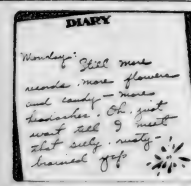 DIARY
Monday: Still more
words, more flowers
and candy - more
headaches! Oh, just
wait till I meet
that silly, rusty-
brained yap